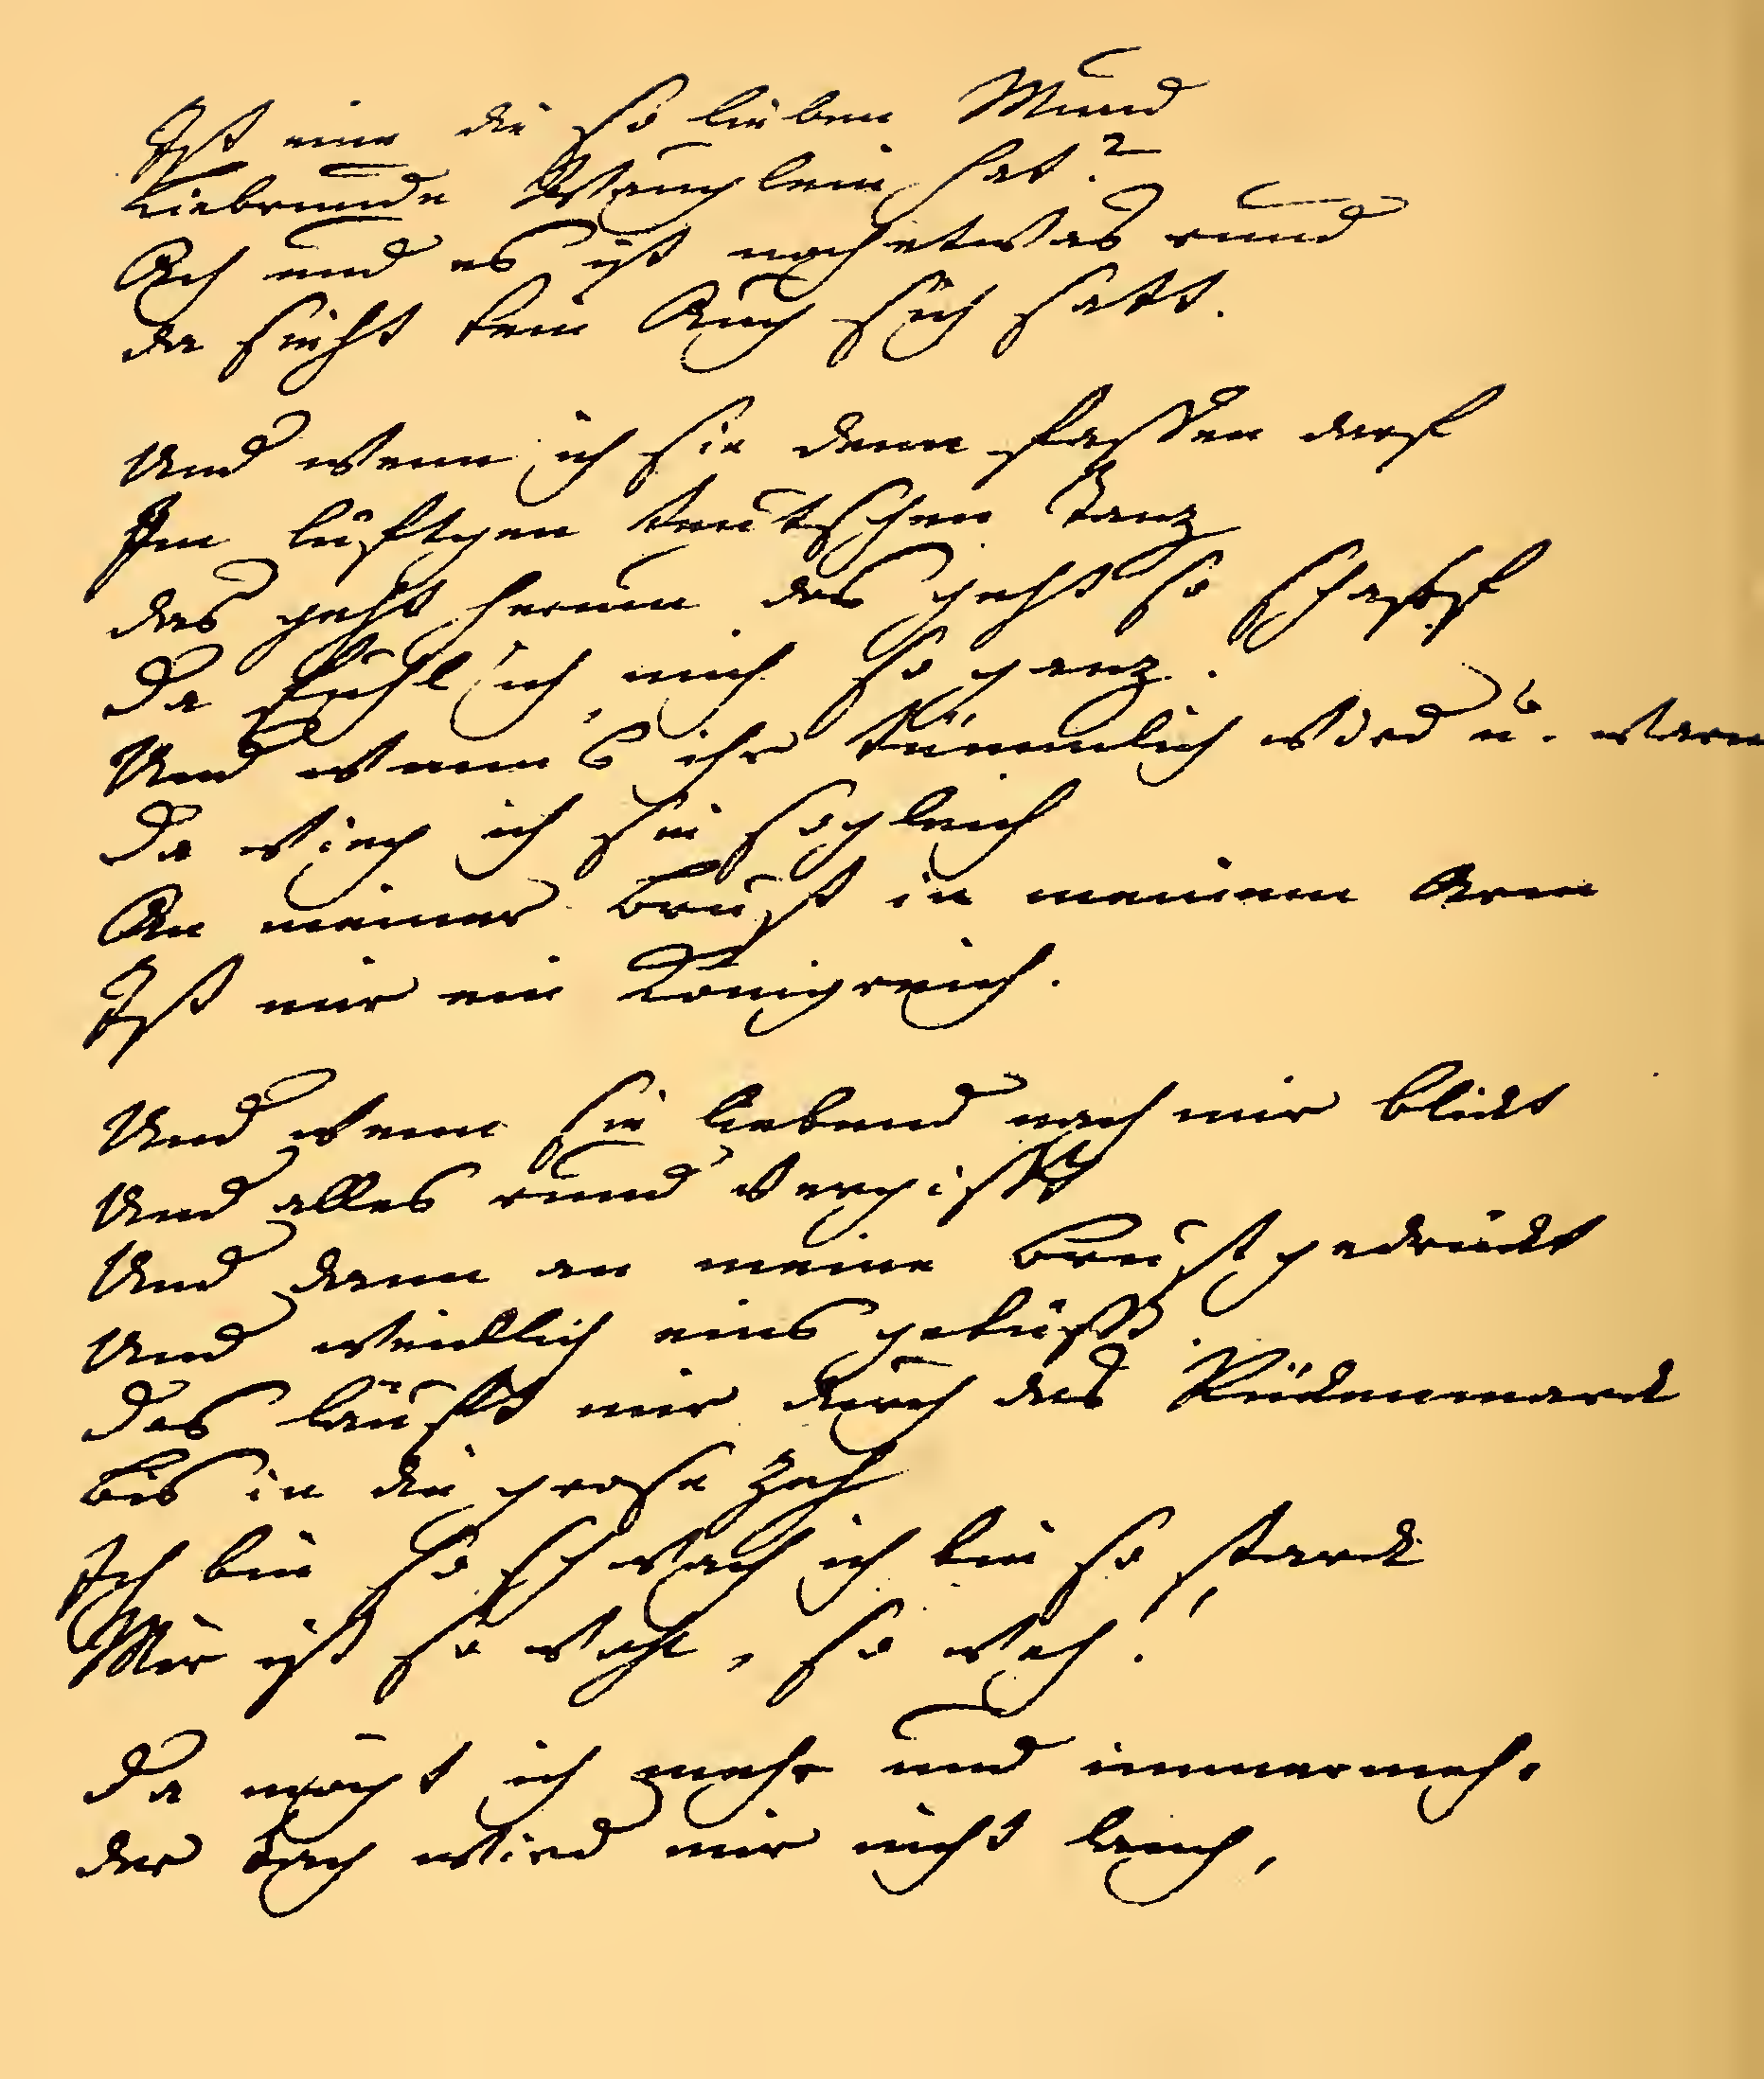 Ist eine die so lieben Mund
Liebrunde Wänglein hat?
Ach und es ist noch etwas rund
da sieht kein Aug sich satt.
Und wenn ich sie denn fassen darf
Im lüftgen teutschen Tanz
das geht herum das geht so scharf
Da fühl ich mich so ganz.
Und wenns ihr tümmlich wird u. warm
Da wieg ich sie sogleich
An meiner Brust in meinem Arm
Ist mir ein Königreich.
Und wenn sie liebend nach mir blickt
Und alles rund vergisst
Und dann an meine Brust gedrückt
Und weidlich eins geküsst.
Das läuft mir durch das Rückenmarck
Bis in die grose Zeh
Ich bin so schwach ich bin so starck
Mir ist so wohl, so weh!
Da möcht ich mehr und immer mehr
der Tag wird mir nicht lang,